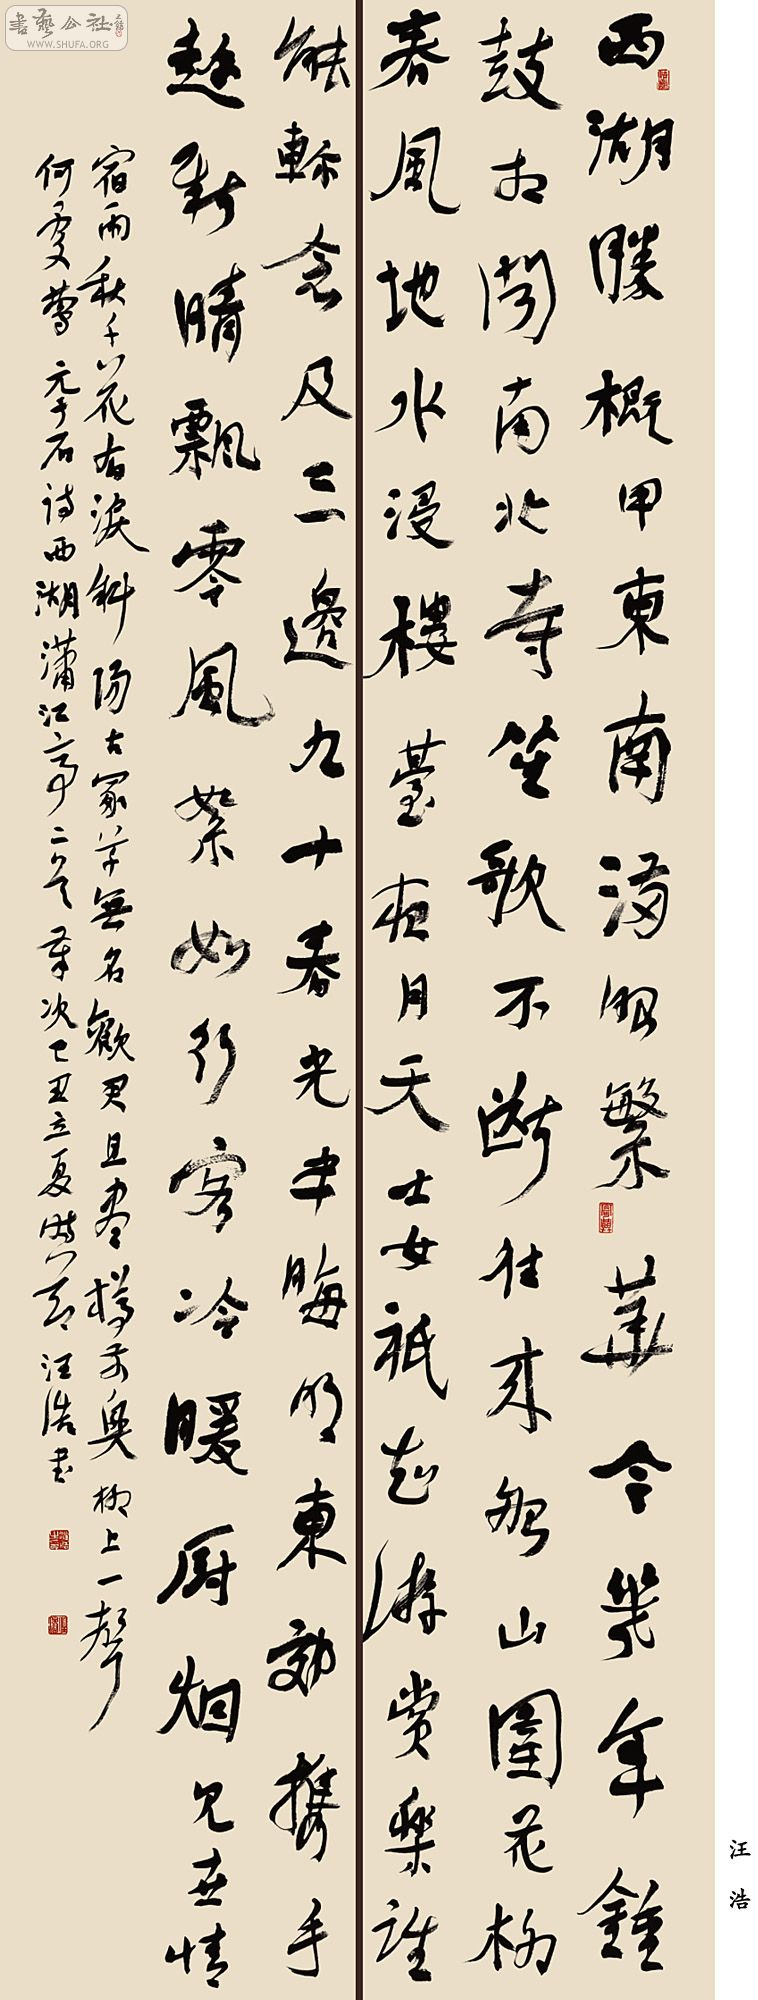 西湖勝概甲東南滿眼繁華今幾年鍾
鼓相聞南北寺笙歌不斷往來船山圍花柳
春風地水浸樓臺夜月天士女祇知游賞樂誰
能軫念及三邊九十春光半晦明東郊攜手
趁新晴飄零風絮如行客冷暖厨烟見世情
宿雨秋千花有淚斜陽古冢草無名勸君且盡樽前興柳上一聲
何處鶯 元于石詩西湖瀟江亭二首 歲次己丑立夏時節汪浩書
汪浩
書藝公社
WWW.SHUFA.ORG